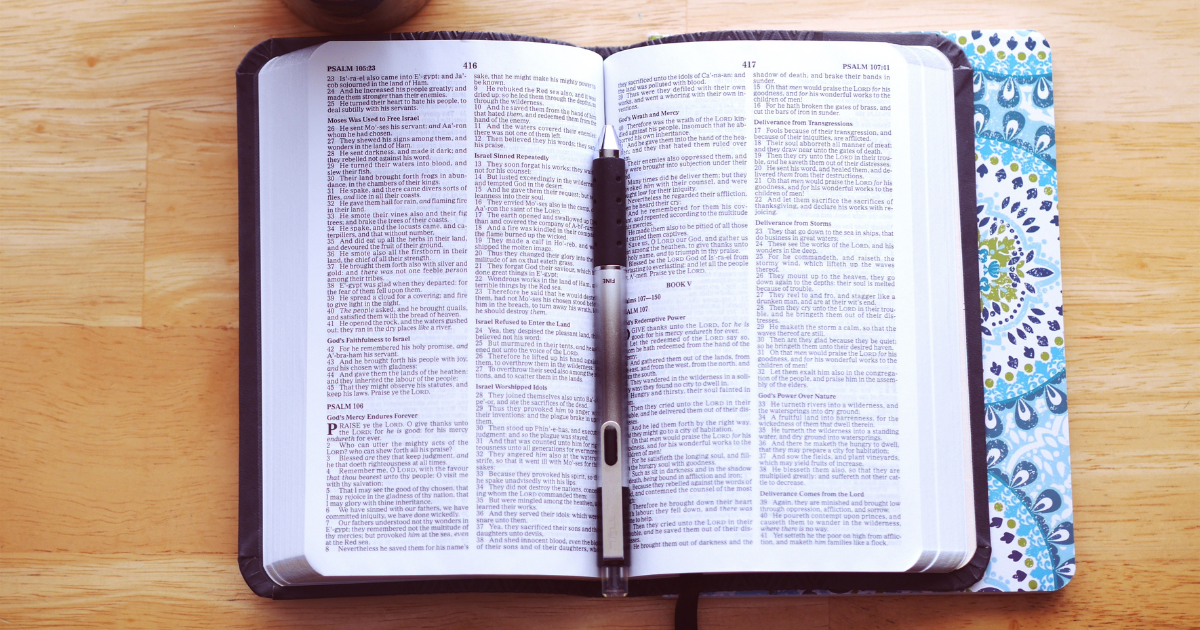 PSALM 105:23
416
23 Is'-ra-el also came into E'-gypt; and Ja'-
cob sojourned in the land of Ham.
24 And he increased his people greatly; and
made them stronger than their enemies.
25 He turned their heart to hate his people, to
deal subtilly with his servants.
Moses Was Used to Free Israel
26 He sent Mo'-ses his servant; and Aa'-ron
whom he had chosen.
27 They shewed his signs among them, and
wonders in the land of Ham.
28 He sent darkness, and made it dark; and
they rebelled not against his word.
29 He turned their waters into blood, and
slew their fish.
30 Their land brought forth frogs in abun-
dance, in the chambers of their kings.
31 He spake, and there came divers sorts of
flies, and lice in all their coasts.
32 He gave them hail for rain, and flaming fire
in their land.
33 He smote their vines also and their fig
trees; and brake the trees of their coasts.
34 He spake, and the locusts came, and ca-
terpillers, and that without number,
35 And did eat up all the herbs in their land,
and devoured the fruit of their ground.
36 He smote also all the firstborn in their
land, the chief of all their strength.
37 He brought them forth also with silver and
gold: and there was not one feeble person
among their tribes.
38 E'-gypt was glad when they departed: for
the fear of them fell upon them.
39 He spread a cloud for a covering; and fire
to give light in the night.
40 The people asked, and he brought quails,
and satisfied them with the bread of heaven.
41 He opened the rock, and the waters gushed
out; they ran in the dry places like a river.
God's Faithfulness to Israel
42 For he remembered his holy promise, and
A'-bra-ham his servant.
43 And he brought forth his people with joy,
and his chosen with gladness:
44 And gave them the lands of the heathen:
and they inherited the labour of the people;
45 That they might observe his statutes, and
keep his laws. Praise ye the LORD.
PSALM 106
God's Mercy Endures Forever
PRAISE ye the LORD. O give thanks unto
the LORD; for he is good: for his mercy
endureth for ever.
2 Who can utter the mighty acts of the
LORD? who can shew forth all his praise?
3 Blessed are they that keep judgment, and
he that doeth righteousness at all times.
4 Remember me, O LORD, with the favour
that thou bearest unto thy people: O visit me
with thy salvation;
5 That I may see the good of thy chosen, that
I may rejoice in the gladness of thy nation, that
I may glory with thine inheritance.
6 We have sinned with our fathers, we have
committed iniquity, we have done wickedly.
7 Our fathers understood not thy wonders in
E'-gypt; they remembered not the multitude of
thy mercies; but provoked him at the sea, even
at the Red sea.
8 Nevertheless he saved them for his name's
sake, that he might make his mighty power to
be known.
9 He rebuked the Red sea also, and it was
dried up: so he led them through the depths, as
through the wilderness.
10 And he saved them from the hand of him
that hated them, and redeemed them from the
hand of the enemy.
11 And the waters covered their enemies:
there was not one of them left.
12 Then believed they his words; they sang
his praise.
Israel Sinned Repeatedly
13 They soon forgat his works; they waited
not for his counsel:
14 But lusted exceedingly in the wilderness,
and tempted God in the desert.
15 And he gave them their request; but sent
leanness into their soul.
16 They envied Mo'-ses also in the camp, and
Aa'-ron the saint of the LORD.
17 The earth opened and swallowed up
than and covered the company of A-bi'-ram.
18 And a fire was kindled in their company;
the flame burned up the wicked.
19 They made a calf in Ho'-reb, and wor-
shipped the molten image.
20 Thus they changed their glory into the
similitude of an ox that eateth grass.
21 They forgat God their saviour, which had
done great things in E'-gypt;
22 Wondrous works in the land of Ham, and
terrible things by the Red sea.
23 Therefore he said that he would destroy
them, had not Mo'-ses his chosen stood before
him in the breach, to turn away his wrath, lest
he should destroy them.
Israel Refused to Enter the Land
24 Yea, they despised the pleasant land, they
believed not his word:
25 But murmured in their tents, and heark-
ened not unto the voice of the LORD.
26 Therefore he lifted up his hand against
them, to overthrow them in the wilderness:
27 To overthrow their seed also among the na-
tions, and to scatter them in the lands.
Israel Worshipped Idols
28 They joined themselves also unto Ba'-al-
pe'-or, and ate the sacrifices of the dead.
29 Thus they provoked him to anger with
their inventions: and the plague brake in upon
them.
30 Then stood up Phin'-e-has, and executed
judgment: and so the plague was stayed.
31 And that was counted unto him for righ-
teousness unto all generations for evermore.
32 They angered him also at the waters of
strife, so that it went ill with Mo'-ses for their
sakes:
33 Because they provoked his spirit, so that
he spake unadvisedly with his lips.
34 They did not destroy the nations, concern-
ing whom the LORD commanded them:
35 But were mingled among the heathen, and
learned their works.
36 And they served their idols: which were a
snare unto them.
37 Yea, they sacrificed their sons and their
daughters unto devils,
38 And shed innocent blood, even the blood
of their sons and of their daughters, whom
PNE
417
PSALM 107:41
they sacrificed unto the idols of Ca'-na-an: and
the land was polluted with blood.
39 Thus were they defiled with their own
works, and went a whoring with their own in-
ventions.
God's Wrath and Mercy
40 Therefore was the wrath of the LORD kin-
dled against his people, insomuch that he ab-
horred his own inheritance.
And he gave them into the hand of the hea-
then; and they that hated them ruled over
Their enemies also oppressed them, and
were brought into subjection under their
Many times did he deliver them; but they
provoked him with their counsel, and were
brought low for their iniquity.
Nevertheless he regarded their affliction,
when he heard their cry:
And he remembered for them his cov-
enant, and repented according to the multitude
of his mercies.
He made them also to be pitied of all those
that carried them captives.
Save us, O LORD our God, and gather us
from among the heathen, to give thanks unto
thy holy name, and to triumph in thy praise.
Blessed be the LORD God of Is'-ra-el from
everlasting to everlasting: and let all the people
say, A'-men. Praise ye the LORD.
BOOK V
Psalms 107—150
PSALM 107
God's Redemptive Power
O GIVE thanks unto the LORD, for he is
good: for his mercy endureth for ever.
Let the redeemed of the LORD say so,
whom he hath redeemed from the hand of the
enemy;
And gathered them out of the lands, from
the east, and from the west, from the north, and
from the south.
They wandered in the wilderness in a soli-
tary way; they found no city to dwell in.
Hungry and thirsty, their soul fainted in
them.
Then they cried unto the LORD in their
trouble, and he delivered them out of their dis-
tresses.
And he led them forth by the right way,
that they might go to a city of habitation.
Oh that men would praise the LORD for his
goodness, and for his wonderful works to the
children of men!
For he satisfieth the longing soul, and fill-
eth the hungry soul with goodness.
Such as sit in darkness and in the shadow
of death, being bound in affliction and iron;
Because they rebelled against the words of
God, and contemned the counsel of the most
High:
Therefore he brought down their heart
with labour; they fell down, and there was
none to help.
Then they cried unto the LORD in their
trouble, and he saved them out of their dis-
tresses.
He brought them out of darkness and the
shadow of death, and brake their bands in
sunder.
15 Oh that men would praise the LORD for his
goodness, and for his wonderful works to the
children of men!
16 For he hath broken the gates of brass, and
cut the bars of iron in sunder.
Deliverance from Transgressions
17 Fools because of their transgression, and
because of their iniquities, are afflicted.
18 Their soul abhorreth all manner of meat;
and they draw near unto the gates of death.
19 Then they cry unto the LORD in their trou-
ble, and he saveth them out of their distresses.
20 He sent his word, and healed them, and de-
livered them from their destructions.
21 Oh that men would praise the LORD for his
goodness, and for his wonderful works to the
children of men!
22 And let them sacrifice the sacrifices of
thanksgiving, and declare his works with re-
joicing.
Deliverance from Storms
23 They that go down to the sea in ships, that
do business in great waters;
24 These see the works of the LORD, and his
wonders in the deep.
25 For he commandeth, and raiseth the
stormy wind, which lifteth up the waves
thereof.
26 They mount up to the heaven, they go
down again to the depths: their soul is melted
because of trouble.
27 They reel to and fro, and stagger like a
drunken man, and are at their wit's end.
28 Then they cry unto the LORD in their trou-
ble, and he bringeth them out of their dis-
tresses.
29 He maketh the storm a calm, so that the
waves thereof are still.
30 Then are they glad because they be quiet;
so he bringeth them unto their desired haven.
31 Oh that men would praise the LORD for his
goodness, and for his wonderful works to the
children of men!
32 Let them exalt him also in the congrega-
tion of the people, and praise him in the assem-
bly of the elders.
God's Power Over Nature
33 He turneth rivers into a wilderness, and
the watersprings into dry ground;
34 A fruitful land into barrenness, for the
wickedness of them that dwell therein.
35 He turneth the wilderness into a standing
water, and dry ground into watersprings.
36 And there he maketh the hungry to dwell,
that they may prepare a city for habitation;
37 And sow the fields, and plant vineyards,
which may yield fruits of increase.
38 He blesseth them also, so that they are
multiplied greatly; and suffereth not their cat-
tle to decrease.
Deliverance Comes from the Lord
39 Again, they are minished and brought low
through oppression, affliction, and sorrow.
40 He poureth contempt upon princes, and
causeth them to wander in the wilderness,
where there is no way.
41 Yet setteth he the poor on high from afflic-
tion, and maketh him families like a flock.